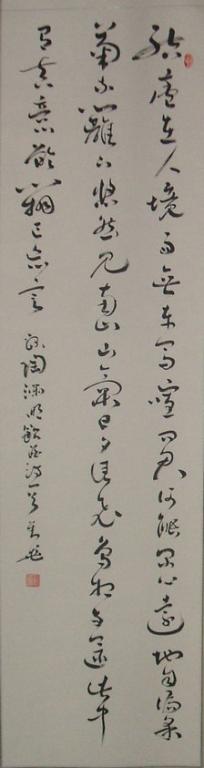 結廬在人境而無車馬喧問君何能爾心遠地自偏采
菊東籬下悠然見南山山氣日夕佳飛鳥相與還此中
有真意欲辨已忘言 錄陶淵明飲酒詩一首